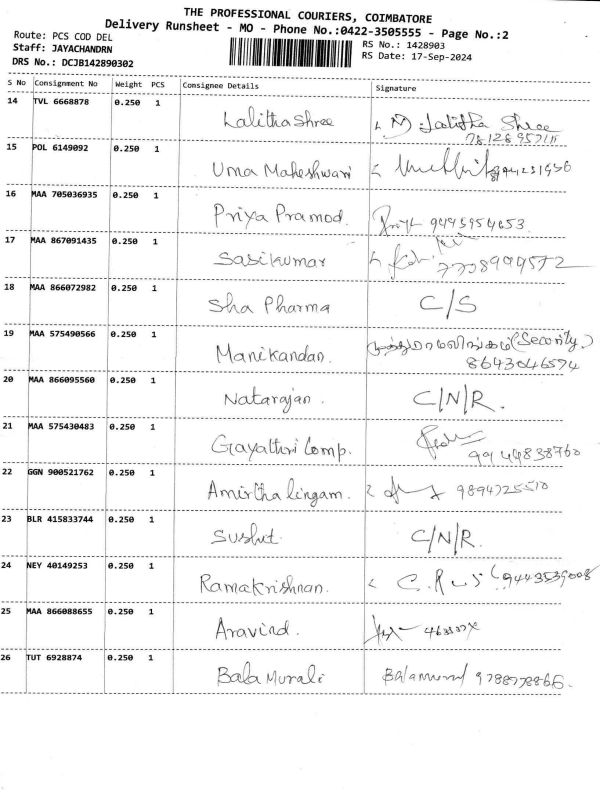 THE PROFESSIONAL COURIERS, COIMBATORE
Delivery Runsheet - MO - Phone No.:0422-3505555 - Page No.:2
Route: PCS COD DEL
Staff: JAYACHANDRN
DRS No.: DCJB142890302
RS No.: 1428903
RS Date: 17-Sep-2024
S No Consignment No Weight PCS Consignee Details Signature
14 TVL 6668878 0.250 1 Lalitha Shree Lalitha Shree
15 POL 6149092 0.250 1 Uma Maheshwari
16 MAA 705036935 0.250 1 Priya Pramod. 9443954653
17 MAA 867091435 0.250 1 Sasikumar
18 MAA 866072982 0.250 1 Sha Pharma C/S
19 MAA 575490566 0.250 1 Manikandan. முத்துமாலிங்கம் (Security)
8643046594
20 MAA 866095560 0.250 1 Natarajan. C/N/R.
21 MAA 575430483 0.250 1 Gayathri Comp. 9944838760
22 GGN 900521762 0.250 1 Amirthalingam. 9894725510
23 BLR 415833744 0.250 1 Sushut. C/N/R.
24 NEY 40149253 0.250 1 Ramakrishnan. 9443539008
25 MAA 866088655 0.250 1 Aravind.
26 TUT 6928874 0.250 1 Bala Murali Balamurali 9788778866.